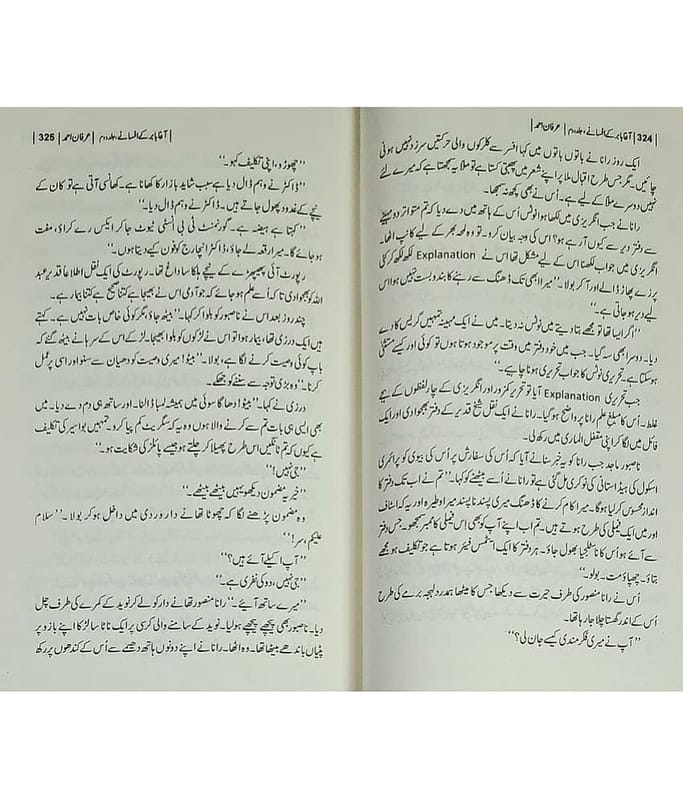 |324| آغا بابر کے افسانے، جلد دوم | عرفان احمد|
ایک روز رانا نے باتوں باتوں میں کہا افسر سے کلرکوں والی حرکتیں سرزد نہیں ہونی
چاہئیں۔ مگر جس طرح اقبال ملا پر اپنے شعر میں پھبتی کستا ہے تو ملا یہ سمجھتا ہے کہ میرے لئے
نہیں دوسرے ملا کے لیے ہے۔ اُس نے بھی کچھ نہ سمجھا۔
رانا نے جب انگریزی میں لکھا ہوا نوٹس اُس کے ہاتھ میں دے دیا کہ تم متواتر دو مہینے
سے دفتر دیر سے کیوں آ رہے ہو؟ اس کی وجہ بیان کرو۔ تو وہ لمحہ بھر کے لیے کانپ اٹھا۔
انگریزی میں جواب لکھنا اس کے لیے مشکل تھا اس نے Explanation لکھ لکھ کر کئی
پرزے پھاڑ ڈالے اور آ کر بولا۔ ’’میرا ابھی تک ڈھنگ سے رہنے کا بندوبست نہیں ہوا اس
لیے دیر ہو جاتی ہے۔‘‘
’’اگر ایسا تھا تو مجھے بتا دیتے میں نوٹس نہ دیتا۔ میں نے ایک مہینہ تمہیں گریس کا دے
دیا۔ دوسرا بھی سہ گیا۔ جب میں خود دفتر میں وقت پر موجود ہوتا ہوں تو کوئی اور کیسے مستثنٰی
ہو سکتا ہے۔ تحریری نوٹس کا جواب تحریری ہونا چاہیے۔‘‘
جب تحریری Explanation آیا تو تحریر کمزور اور انگریزی کے چار لفظوں کے ہجے
غلط۔ اُس کا مبلغ علم رانا پر واضح ہو گیا۔ رانا نے ایک نقل شیخ قدیر کے دفتر بھجوا دی اور ایک
فائل میں لگا کر اپنی مقفل الماری میں رکھ لی۔
ناصبور ماجد جب رانا کو یہ خبر سنانے آیا کہ اُس کی سفارش پر اُس کی بیوی کو پرائمری
اسکول کی ہیڈ استانی کی نوکری مل گئی ہے تو رانا نے اسے بیٹھنے کو کہا۔ ’’تم نے اب تک دفتر کا
انداز محسوس کر لیا ہو گا۔ میرا کام کرنے کا ڈھنگ میری پسند ناپسند میرا وطیرہ اور یہ کہ اسٹاف
اور میں ایک فیملی کی طرح ہوتے ہیں۔ تم اب اپنے آپ کو بھی اس فیملی کا ممبر سمجھو۔ جس دفتر
سے آئے ہو اُس کا ناسٹلجیا بھول جاؤ۔ ہر دفتر کا ایک ایٹمس فیئر ہوتا ہے جو تکلیف ہو مجھے
بتاؤ۔ چھپاؤ مت۔ بولو۔‘‘
اُس نے رانا منصور کی طرف حیرت سے دیکھا جس کا میٹھا ہمدرد لہجہ برمے کی طرح
اُس کے اندر گھستا چلا جا رہا تھا۔
’’آپ نے میری فکر مندی کیسے جان لی؟‘‘
|آغا بابر کے افسانے، جلد دوم | عرفان احمد |325|
’’چھوڑو، اپنی تکلیف کہو۔‘‘
’’ڈاکٹر نے وہم ڈال دیا ہے سبب شاید بازار کا کھانا ہے۔ کھانسی آتی ہے تو کان کے
نیچے کے غدود پھول جاتے ہیں۔ ڈاکٹر نے وہم ڈال دیا۔‘‘
’’کہتا ہے ہیضہ ہے۔ گورنمنٹ ٹی بی انسٹی ٹیوٹ جا کر ایکس رے کراؤ، مفت
ہو جائے گا۔ میرا رقعہ لے جاؤ، ڈاکٹر انچارج کو فون کیے دیتا ہوں۔‘‘
رپورٹ آئی پھیپھڑے کے نیچے ہلکا سا داغ تھا۔ رپورٹ کی ایک نقل اطلاعاً قدیر عبد
اللہ کو بھجوا دی تا کہ اُسے علم ہو جائے کہ جو آدمی اس نے بھیجا ہے کتنا صحیح ہے کتنا بیمار ہے۔
چند روز بعد اس نے ناصبور کو بلوا کر کہا۔ ’’بیٹھ جاؤ، مگر کوئی خاص بات نہیں ہے۔ کہتے
ہیں ایک درزی تھا، بیمار ہوا تو اس نے لڑکوں کو بلوا بھیجا۔ لڑکے اس کے سرہانے بیٹھ گئے کہ
باپ کوئی وصیت کرنے لگا ہے، بولا۔ ’’بیٹو! میری وصیت کو دھیان سے سنو اور اسی پر عمل
کرنا۔‘‘ وہ بڑی توجہ سے سننے کو جھکے۔
درزی نے کہا۔ ’’بیٹو! دھاگا سوئی میں ہمیشہ لمبا ڈالنا۔ اور ساتھ ہی دم دے دیا۔ میں
بھی ایسی ہی بات تم سے کرنے والا ہوں وہ یہ کہ سگریٹ کم پیا کرو۔ تمہیں بواسیر کی تکلیف
ہے کیوں کہ تم ٹانگیں اس طرح پھیلا کر چلتے ہو جیسے پائلز کی شکایت ہو۔‘‘
’’جی نہیں!‘‘
’’خیر یہ مضمون دیکھو یہیں بیٹھے بیٹھے۔‘‘
وہ مضمون پڑھنے لگا کہ چھوٹا تھانے دار وردی میں داخل ہو کر بولا۔ ’’سلام
علیکم، سر!‘‘
’’آپ اکیلے آئے ہیں؟‘‘
’’جی نہیں، دو کی نفری ہے۔‘‘
’’میرے ساتھ آیئے۔‘‘ رانا منصور تھانے دار کو لے کر نوید کے کمرے کی طرف چل
دیا۔ ناصبور بھی پیچھے پیچھے ہو لیا۔ نوید کے سامنے والی کرسی پر ایک ناٹا سا لڑکا اپنے بازو پر
پٹیاں باندھے بیٹھا تھا۔ وہ اٹھا۔ رانا نے اپنے دونوں ہاتھ دھیمے سے اُس کے کندھوں پر رکھ